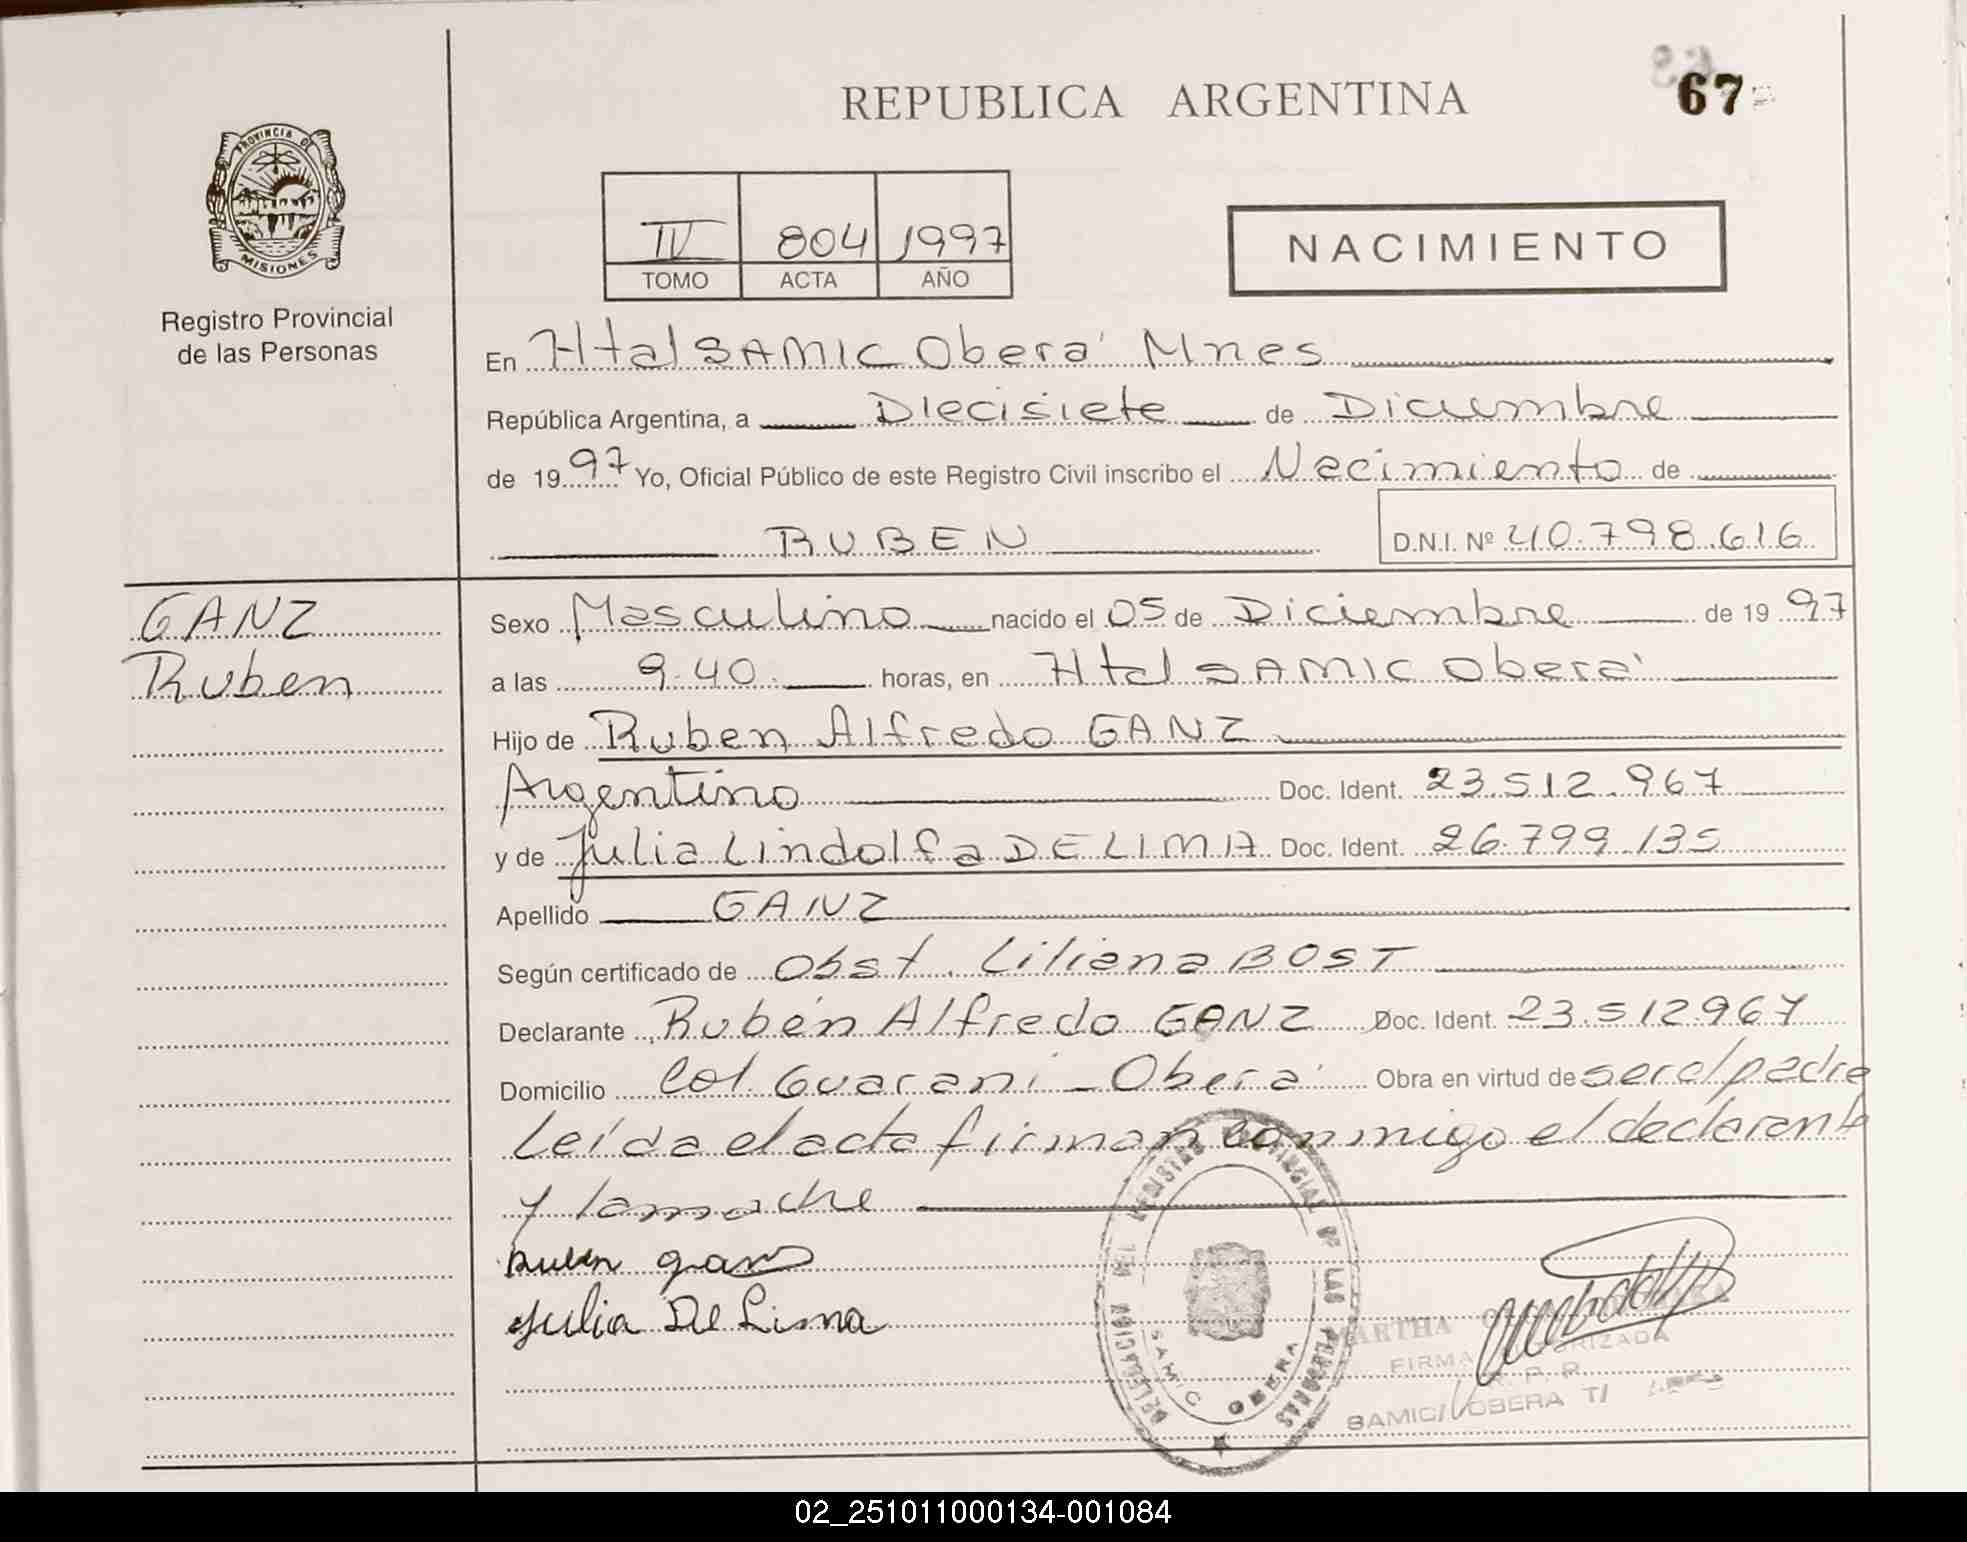 REPUBLICA ARGENTINA
67
PROVINCIA DE
MISIONES
Registro Provincial
de las Personas
IV 804 1997
TOMO ACTA AÑO
NACIMIENTO
En Htal SAMIC Oberá Mnes
República Argentina, a Diecisiete de Diciembre
de 1997 Yo, Oficial Público de este Registro Civil inscribo el Nacimiento de
RUBEN
D.N.I. Nº 40.798.616
GANZ
Ruben
Sexo Masculino nacido el 05 de Diciembre de 1997
a las 9.40. horas, en Htal SAMIC Oberá
Hijo de Ruben Alfredo GANZ
Argentino Doc. Ident. 23.512.967
y de Julia Lindolfa DE LIMA Doc. Ident. 26.799.135
Apellido GANZ
Según certificado de Obst. Liliana BOST
Declarante Rubén Alfredo GANZ Doc. Ident. 23.512967
Domicilio Col Guaraní - Oberá Obra en virtud de ser el padre
Leída el acta firman conmigo el declarante
y la madre
Ruben ganz
Julia De Lima
DELEGACION REGISTRO PROVINCIAL DE LAS PERSONAS
SAMIC OBERA
MARTHA
FIRMA AUTORIZADA
R. P. P.
SAMIC/OBERA T/
02_251011000134-001084